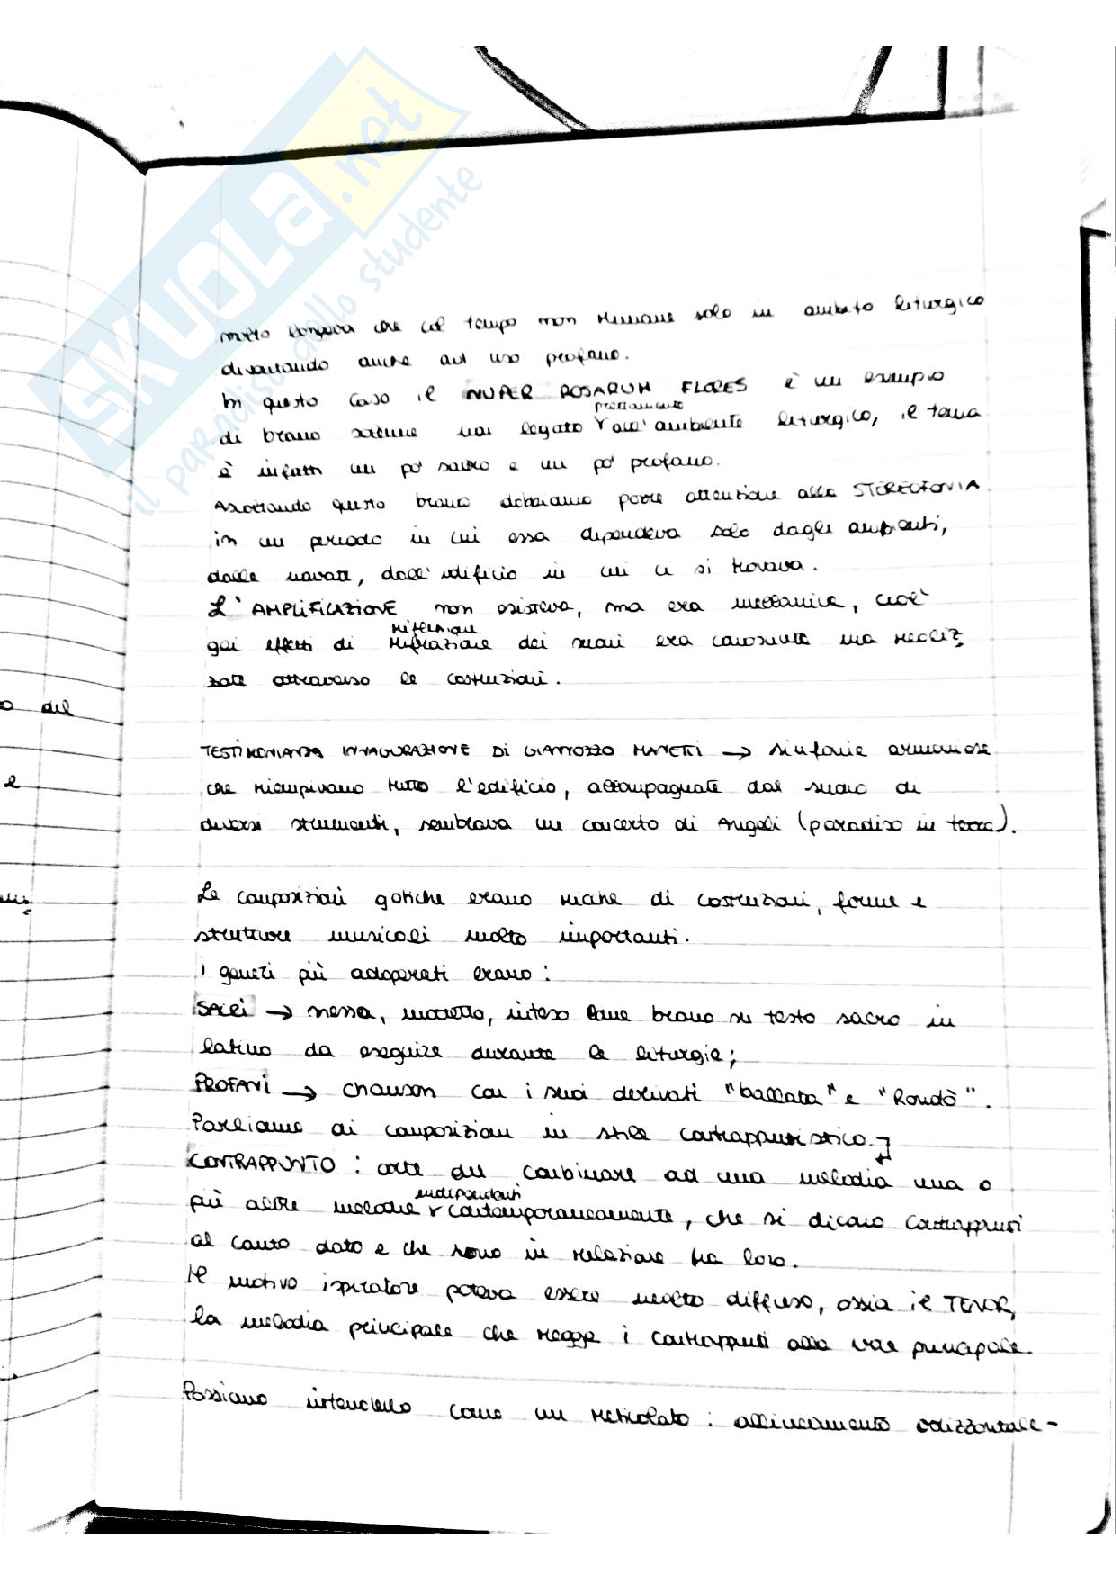 SKUOLA.net
il paradiso dello studente
che col tempo non rimane solo in ambito liturgico
diventando anche ad uso profano.
In questo caso il NUPER ROSARUM FLORES è un esempio
prettamente
di brano solenne mai legato all'ambiente liturgico, il tema
è infatti un po' sacro e un po' profano.
Ascoltando questo brano dobbiamo porre attenzione alla STEREOFONIA
in un periodo in cui essa dipendeva solo dagli ambienti,
dalle navate, dall'edificio in cui ci si trovava.
L'AMPLIFICAZIONE non esisteva, ma era meccanica, cioè
riflessione
gli effetti di rifrazione dei suoni era conosciuta ma realiz
zate attraverso le costruzioni.
TESTIMONIANZA INAUGURAZIONE DI GIANNOZZO MANETTI → sinfonie armoniose
che riempivano tutto l'edificio, accompagnate dal suono di
diversi strumenti, sembrava un concerto di Angeli (paradiso in terra).
Le composizioni gotiche erano ricche di costruzioni, forme e
strutture musicali molto importanti.
I generi più adoperati erano:
SACRI → messa, mottetto, inteso come brano su testo sacro in
latino da eseguire durante le liturgie;
PROFANI → chanson con i suoi derivati "ballata" e "Rondò".
Parliamo di composizioni in stile contrappuntistico.
CONTRAPPUNTO: arte di combinare ad una melodia una o
indipendenti
più altre melodie contemporaneamente, che si dicono contrappunti
al canto dato e che sono in relazione tra loro.
Il motivo ispiratore poteva essere molto diffuso, ossia il TENOR,
la melodia principale che regge i contrappunti alla voce principale.
Possiamo intenderlo come un reticolato: allineamento orizzontale-
o del
e